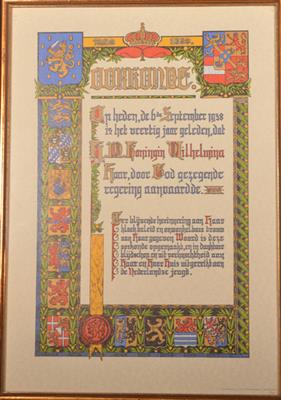 1898 1938.
OORKONDE.
Op heden, de 6de September 1938
is het veertig jaar geleden, dat
H.M. Koningin Wilhelmina
Haar, door God gezegende
regering aanvaardde.
Ter blijvende herinnering aan Haar
kloek beleid en onwankelbare trouw
aan Haar gegeven Woord is deze
oorkonde opgemaakt en in dankbare
blijdschap en uit verknochtheid aan
Haar en Haar Huis uitgereikt aan
de Nederlandse jeugd.